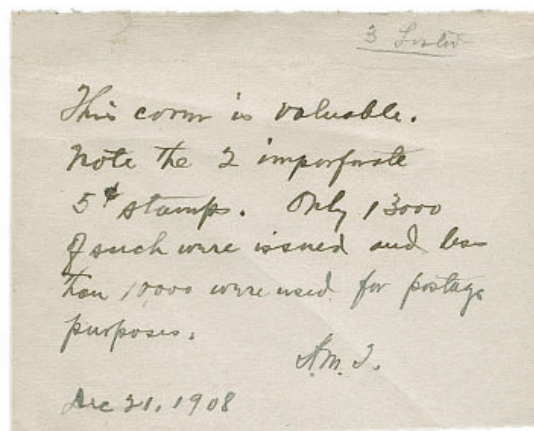 3
This cover is valuable.
Note the 2 imperforate
5¢ stamps. Only 13000
of such were issued and less
than 10000 were used for postage
purposes.
Dec 21, 1908